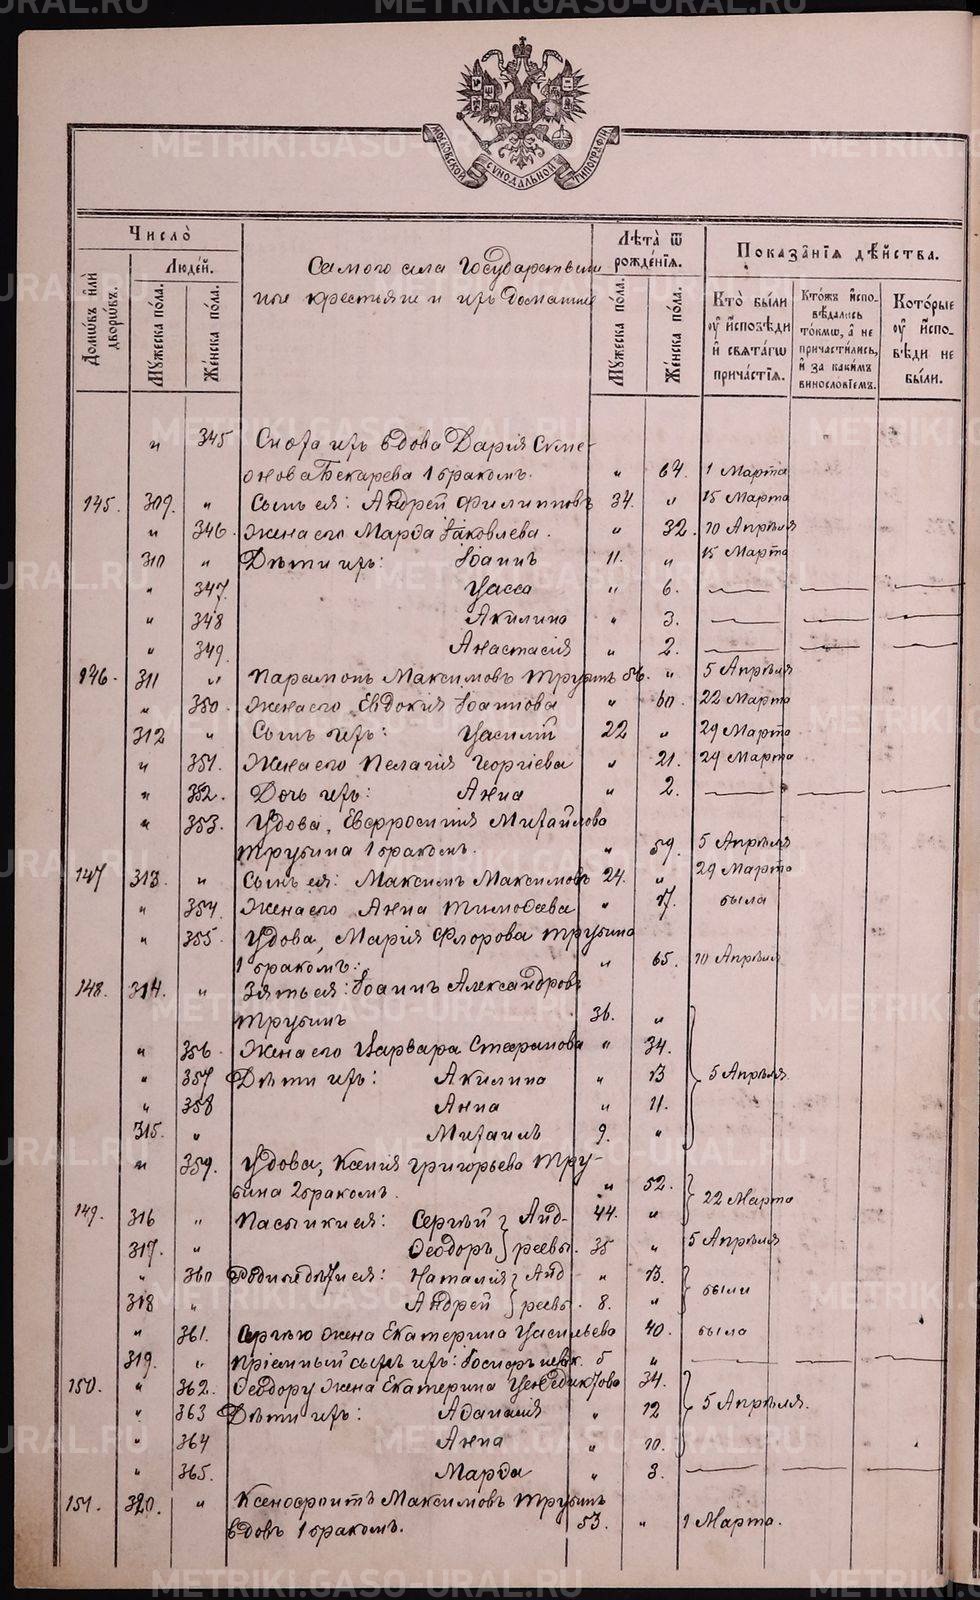 METRIKI.GASO-URAL.RU
МОСКОВСКОЙ СѴНОДАЛЬНОЙ ТИПОГРАФІИ
Число̀
Домѡ́въ и҆лѝ дворѡ́въ.
Людей.
Мꙋ́жеска по́ла.
Же́нска по́ла.
Самого села Государствен
ные крестьяне и ихъ домашніе
Лѣ́та ѿ рожде́нїѧ.
Мꙋ́жеска по́ла.
Же́нска по́ла.
Показа̑нїѧ дѣ́йства.
Кто̀ бы́ли ᲂу҆ и҆сповѣди и҆ свѧта́гѡ прича́стїѧ.
Кто́жъ и҆спо- вѣдались то́кмѡ, а҆ не причасти́лись, и҆ за какимъ винословїемъ.
Кото́рые ᲂу҆ и҆спо- вѣди не бы́ли.
" 345 Сноха ихъ вдова Дарія Симе-
онова Бекарева 1 бракомъ. " 64. 1 Марта
145. 309. " Сынъ ея: Андрей Филипповъ 34. " 15 Марта
" 346. Жена его Марѳа Іаковлева. " 32. 10 Апрѣля
310 " Дѣти ихъ: Іоаннъ 11. " 15 Марта
" 347. Васса " 6.
" 348 Акилина " 3.
" 349. Анастасія " 2.
146. 311 " Парамонъ Максимовъ Трубинъ 56. " 5 Апрѣля
" 350. Жена его Евдокия Іоаннова " 60. 22 Марта
312 " Сынъ ихъ: Василій 22 " 29 Марта
" 351. Жена его Пелагія Георгіева " 21. 29 Марта
" 352. Дочь ихъ: Анна " 2.
" 353. Вдова, Евфросинія Михайлова
Трубина 1 бракомъ. " 59. 5 Апрѣля
147 313. " Сынъ ея: Максимъ Максимовъ 24. " 29 Марта
" 354. Жена его Анна Тимоѳеева " 17. была
" 355. Вдова, Марія Флорова Трубина
1 бракомъ: " 65. 10 Апрѣля
148. 314. " Зять ея: Іоаннъ Александровъ
Трубинъ 36. "
" 356. Жена его Варвара Стефанова " 34.
" 357 Дѣти ихъ: Акилина " 13 5 Апрѣля.
" 358 Анна " 11.
315. " Михаилъ 9. "
" 359. Вдова, Ксенія Григорьева Тру-
бина 2 бракомъ. " 52. 22 Марта
149. 316 " Пасынки ея: Сергѣй } Анд- 44. "
317. " Ѳеодоръ } реевы. 35 " 5 Апрѣля
" 360 Родные дѣти ея: Наталія } Анд " 13. были
318 " Андрей } реевы. 8. "
" 361. Сергѣю жена Екатерина Васильева 40. была
319. " Пріемный сынъ ихъ: 5 "
150. " 362. Ѳеодору жена Екатерина Венедиктова 34.
" 363 Дѣти ихъ: Аѳанасія " 12 5 Апрѣля.
" 364 Анна " 10.
" 365. Марѳа " 3.
151. 320. " Ксенофонтъ Максимовъ Трубинъ
вдовъ 1 бракомъ. 53. " 1 Марта.